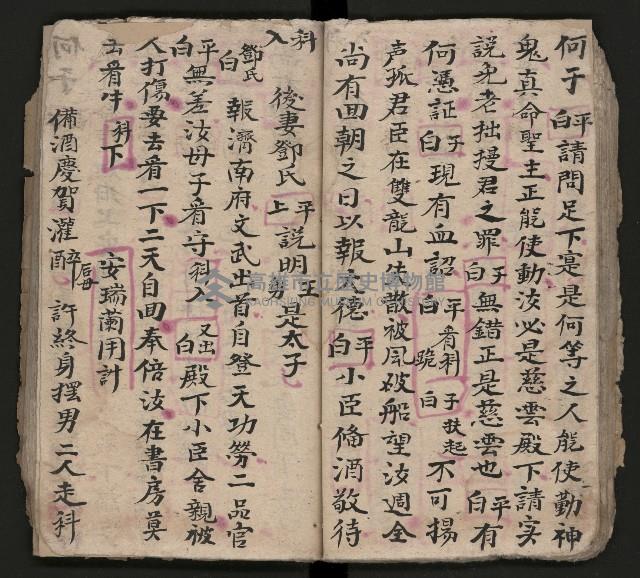 何子 白平 請問足下是是何等之人能使動神
鬼真命聖主正能使動汝必是慈雲殿下請实
説免老拙擾君之罪 白子 無錯正是慈雲也 白平 有
何憑証 白子 現有血詔 白平 看科 跪 白子 扶起 不可揚
声孤君臣在雙龍山 散被風破船望汝週全
尚有回朝之日以報 德 白平 小臣俻酒敬待
入科
後妻鄧氏 上平 説明 是太子
鄧氏白 報濟南府文武出首自登天功勞二品官
白平 無差汝母子看守科入 又出白 殿下小臣舍親被
人打傷要去看一下二天自回奉倍汝在書房莫
去看牛 科下 安瑞蘭用計
何子 備酒慶賀灌醉 后母 許終身擇男二人走科
高雄市立歷史博物館
KAOHSIUNG MUSEUM OF HISTORY